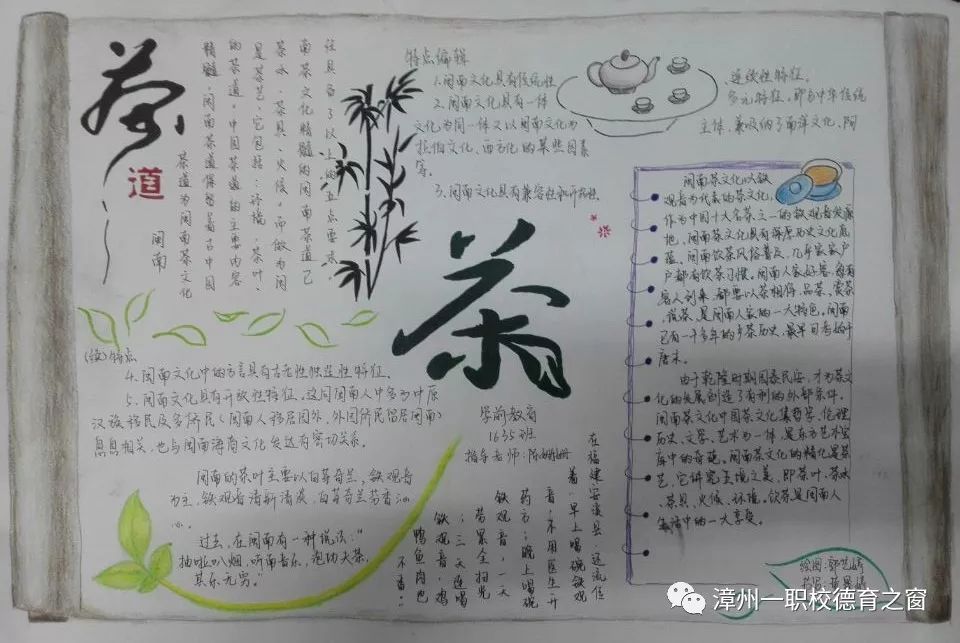 茶
道
闽南
茶道为闽南茶文化
精髓,闽南茶道保留着古中国
的茶道。中国茶道的主要内容
是茶艺,它包括:环境、茶叶、
茶水、茶具、火候。而做为闽
南茶文化精髓的闽南茶道已
经具备了以上的五点要求。
特点编辑
1.闽南文化具有传统性、连续性特征。
2.闽南文化具有一体多元特征。即为中华传统
文化为同一体又以闽南文化为主体,兼吸纳了南洋文化、阿
拉伯文化、西方化的某些因素
等。
3.闽南文化具有兼容性和开拓性
(续)特点
4.闽南文化中的方言具有古老性独这性特征。
5.闽南文化具有开放性特征。这同闽南人中多为中原
汉族移民及多侨民(闽南人移居国外,外国侨民留居闽南)
息息相关,也与闽南海商文化发达有密切关系。
闽南的茶叶主要以白芽奇兰,铁观音
为主,铁观音清新清爽,白芽奇兰芳香沁
心。
过去,在闽南有一种说法:“
抽啦叭烟,听南音乐,泡功夫茶,
其乐无穷。”
茶
学前教育
1635班
指导老师:陈姗姗
在福建安溪县,还流传
着:早上喝碗铁观
音,不用医生开
药方;晚上喝碗
铁观音,一天
劳累全扫光
;三天连喝
铁观音,鸡
鸭鱼肉也
不香。
闽南茶文化以铁
观音为代表的茶文化,
作为中国十大名茶之一的铁观音发源
地,闽南茶文化具有深厚历史文化底
蕴。闽南饮茶风俗普及,几乎家家户
户都有饮茶习惯。闽南人家好客,每有
客人到来,都要以茶相待,品茶、赏茶
、信茶,是闽南人家的一大特色。闽南
已有一千多年的乡茶历史,最早可考始于
唐末。
由于乾隆时期国泰民安,才为茶文
化的发展创造了有利的外部条件。
闽南茶文化中国茶文化集哲学、伦理
历史、文学、艺术为一体,是东方艺术宝
库中的奇葩。闽南茶文化的精化是茶
艺,它讲究五境之美,即茶叶、茶水
、茶具、火候、环境。饮茶是闽南人
生活中的一大享受。
绘图:郭艺婷
漳州一职校德育之窗